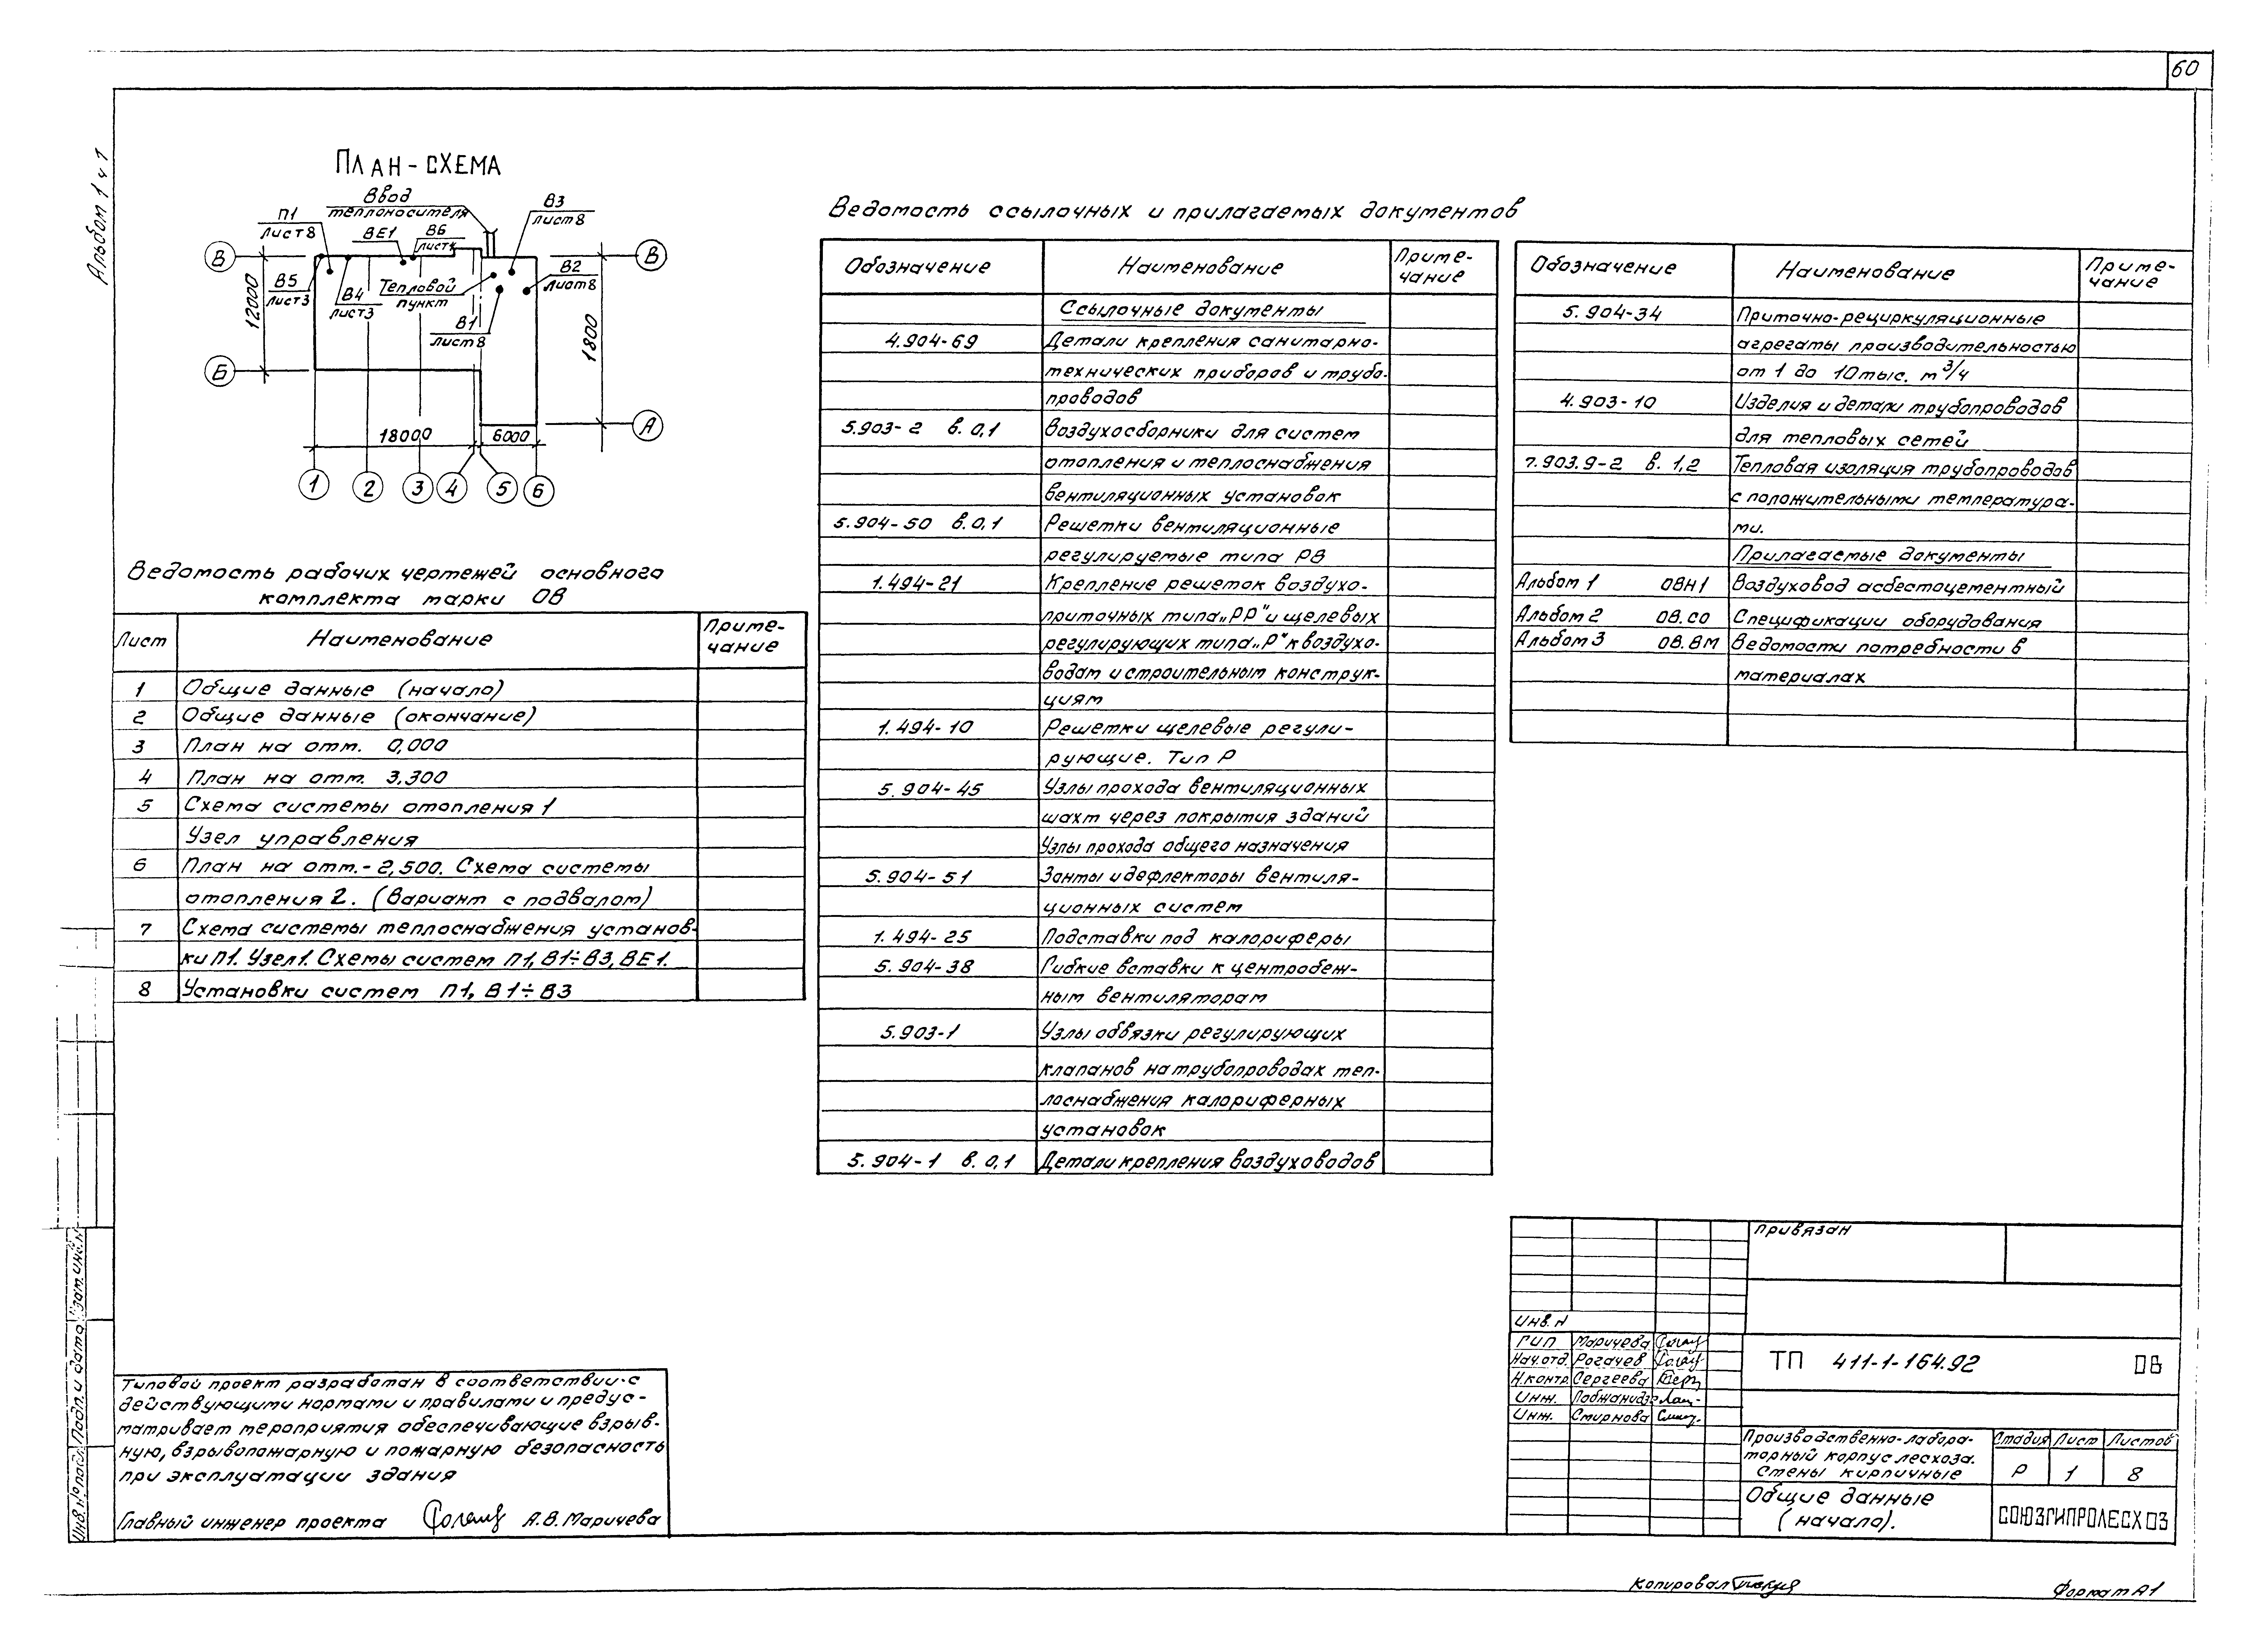 60
Альбом 1 ч 1
План-схема
Ввод
теплоносителя
П1
Лист 8
ВЕ1
В6
Лист 4
В3
Лист 8
В5
Лист 3
В4
Лист 3
Тепловой
пункт
В1
Лист 8
В2
Лист 8
В
Б
В
А
12000
1800
18000
6000
1
2
3
4
5
6
Ведомость рабочих чертежей основного
комплекта марки ОВ
Лист
Наименование
Приме-
чание
1 Общие данные (начало)
2 Общие данные (окончание)
3 План на отм. 0,000
4 План на отм. 3,300
5 Схема системы отопления 1
Узел управления
6 План на отм.- 2,500. Схема системы
отопления 2. (Вариант с подвалом)
7 Схема системы теплоснабжения установ-
ки П1. Узел 1. Схемы систем П1, В1÷В3, ВЕ1.
8 Установки систем П1, В1÷В3
Ведомость ссылочных и прилагаемых документов
Обозначение
Наименование
Приме-
чание
Ссылочные документы
4.904-69 Детали крепления санитарно-
технических приборов и трубо-
проводов
5.903-2 в. 0,1 Воздухосборники для систем
отопления и теплоснабжения
вентиляционных установок
5.904-50 в. 0,1 Решетки вентиляционные
регулируемые типа РВ
1.494-21 Крепление решеток воздухо-
приточных типа „РР" и щелевых
регулирующих типа „Р" к воздухо-
водам и строительным конструк-
циям
1.494-10 Решетки щелевые регули-
рующие. Тип Р
5.904-45 Узлы прохода вентиляционных
шахт через покрытия зданий
Узлы прохода общего назначения
5.904-51 Зонты и дефлекторы вентиля-
ционных систем
1.494-25 Подставки под калориферы
5.904-38 Гибкие вставки к центробеж-
ным вентиляторам
5.903-1 Узлы обвязки регулирующих
клапанов на трубопроводах теп-
лоснабжения калориферных
установок
5.904-1 в. 0,1 Детали крепления воздуховодов
Обозначение
Наименование
Приме-
чание
5.904-34 Приточно-рециркуляционные
агрегаты производительностью
от 1 до 10 тыс. м³/ч
4.903-10 Изделия и детали трубопроводов
для тепловых сетей
7.903.9-2 в. 1,2 Тепловая изоляция трубопроводов
с положительными температура-
ми.
Прилагаемые документы
Альбом 1 ОВН1 Воздуховод асбестоцементный
Альбом 2 ОВ.СО Спецификации оборудования
Альбом 3 ОВ.ВМ Ведомости потребности в
материалах
Типовой проект разработан в соответствии с
действующими нормами и правилами и предус-
матривает мероприятия обеспечивающие взрыв-
ную, взрывопожарную и пожарную безопасность
при эксплуатации здания
Главный инженер проекта А.В. Маричева
Привязан
Инв. н
ГИП Маричева
Нач.отд. Рогачев
Н.контр Сергеева
Инж.
Инж. Смирнова
ТП 411-1-164.92 ОВ
Производственно-лабора-
торный корпус лесхоза.
Стены кирпичные
Стадия Лист Листов
Р 1 8
Общие данные
(начало).
СОЮЗГИПРОЛЕСХОЗ
Инв. N подл. Подп. и дата Взам. инв. н
Копировал
Формат А1